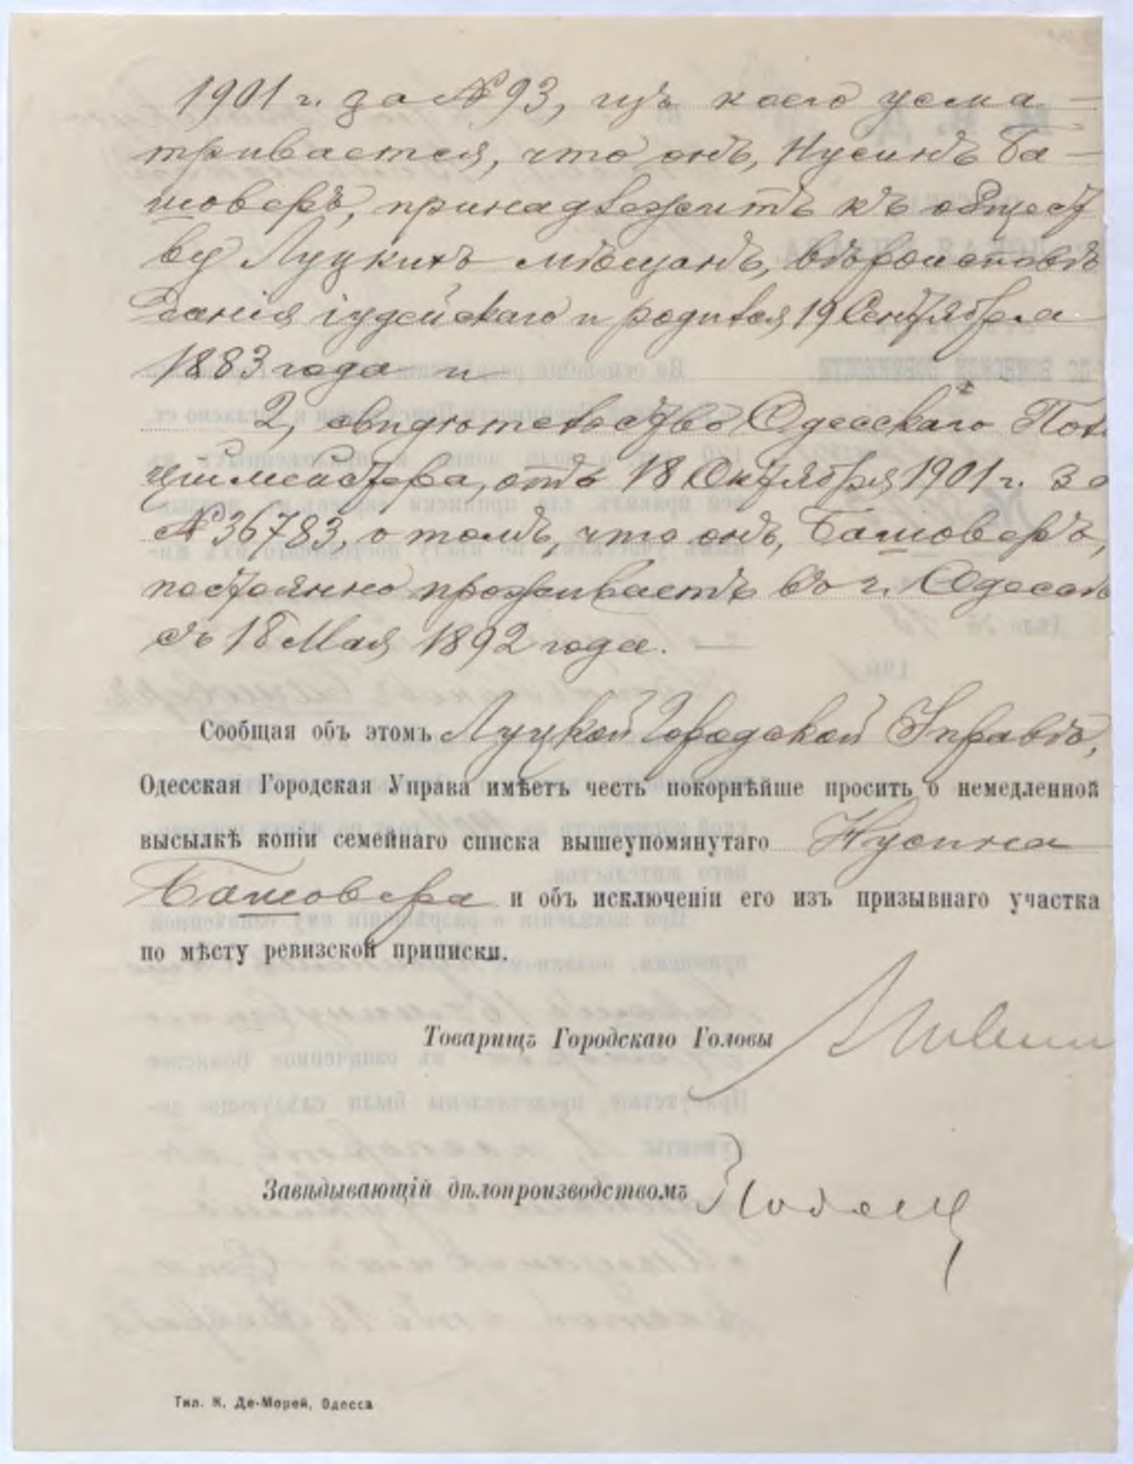 1901 г. за № 93, изъ коего усма-
тривается, что онъ, Нусинъ Ба-
шоверъ, принадлежитъ къ общест
ву Луцкихъ мѣщанъ, вѣроисповѣ
данія іудейскаго и родился 19 Сентября
1883 года и
2, свидѣтельство Одесскаго Поли
ціймейстера, отъ 18 Октября 1901 г. за
№ 36783, о томъ, что онъ, Башоверъ,
постоянно проживаетъ въ г. Одессѣ
съ 18 Мая 1892 года. —
Сообщая объ этомъ Луцкой Городской Управѣ,
Одесская Городская Управа имѣетъ честь покорнѣйше просить о немедленной
высылкѣ копіи семейнаго списка вышеупомянутаго Нусина
Башовера и объ исключеніи его изъ призывнаго участка
по мѣсту ревизской приписки.
Товарищъ Городскаго Головы
Завѣдывающій дѣлопроизводствомъ
Тип. К. Де-Морей, Одесса